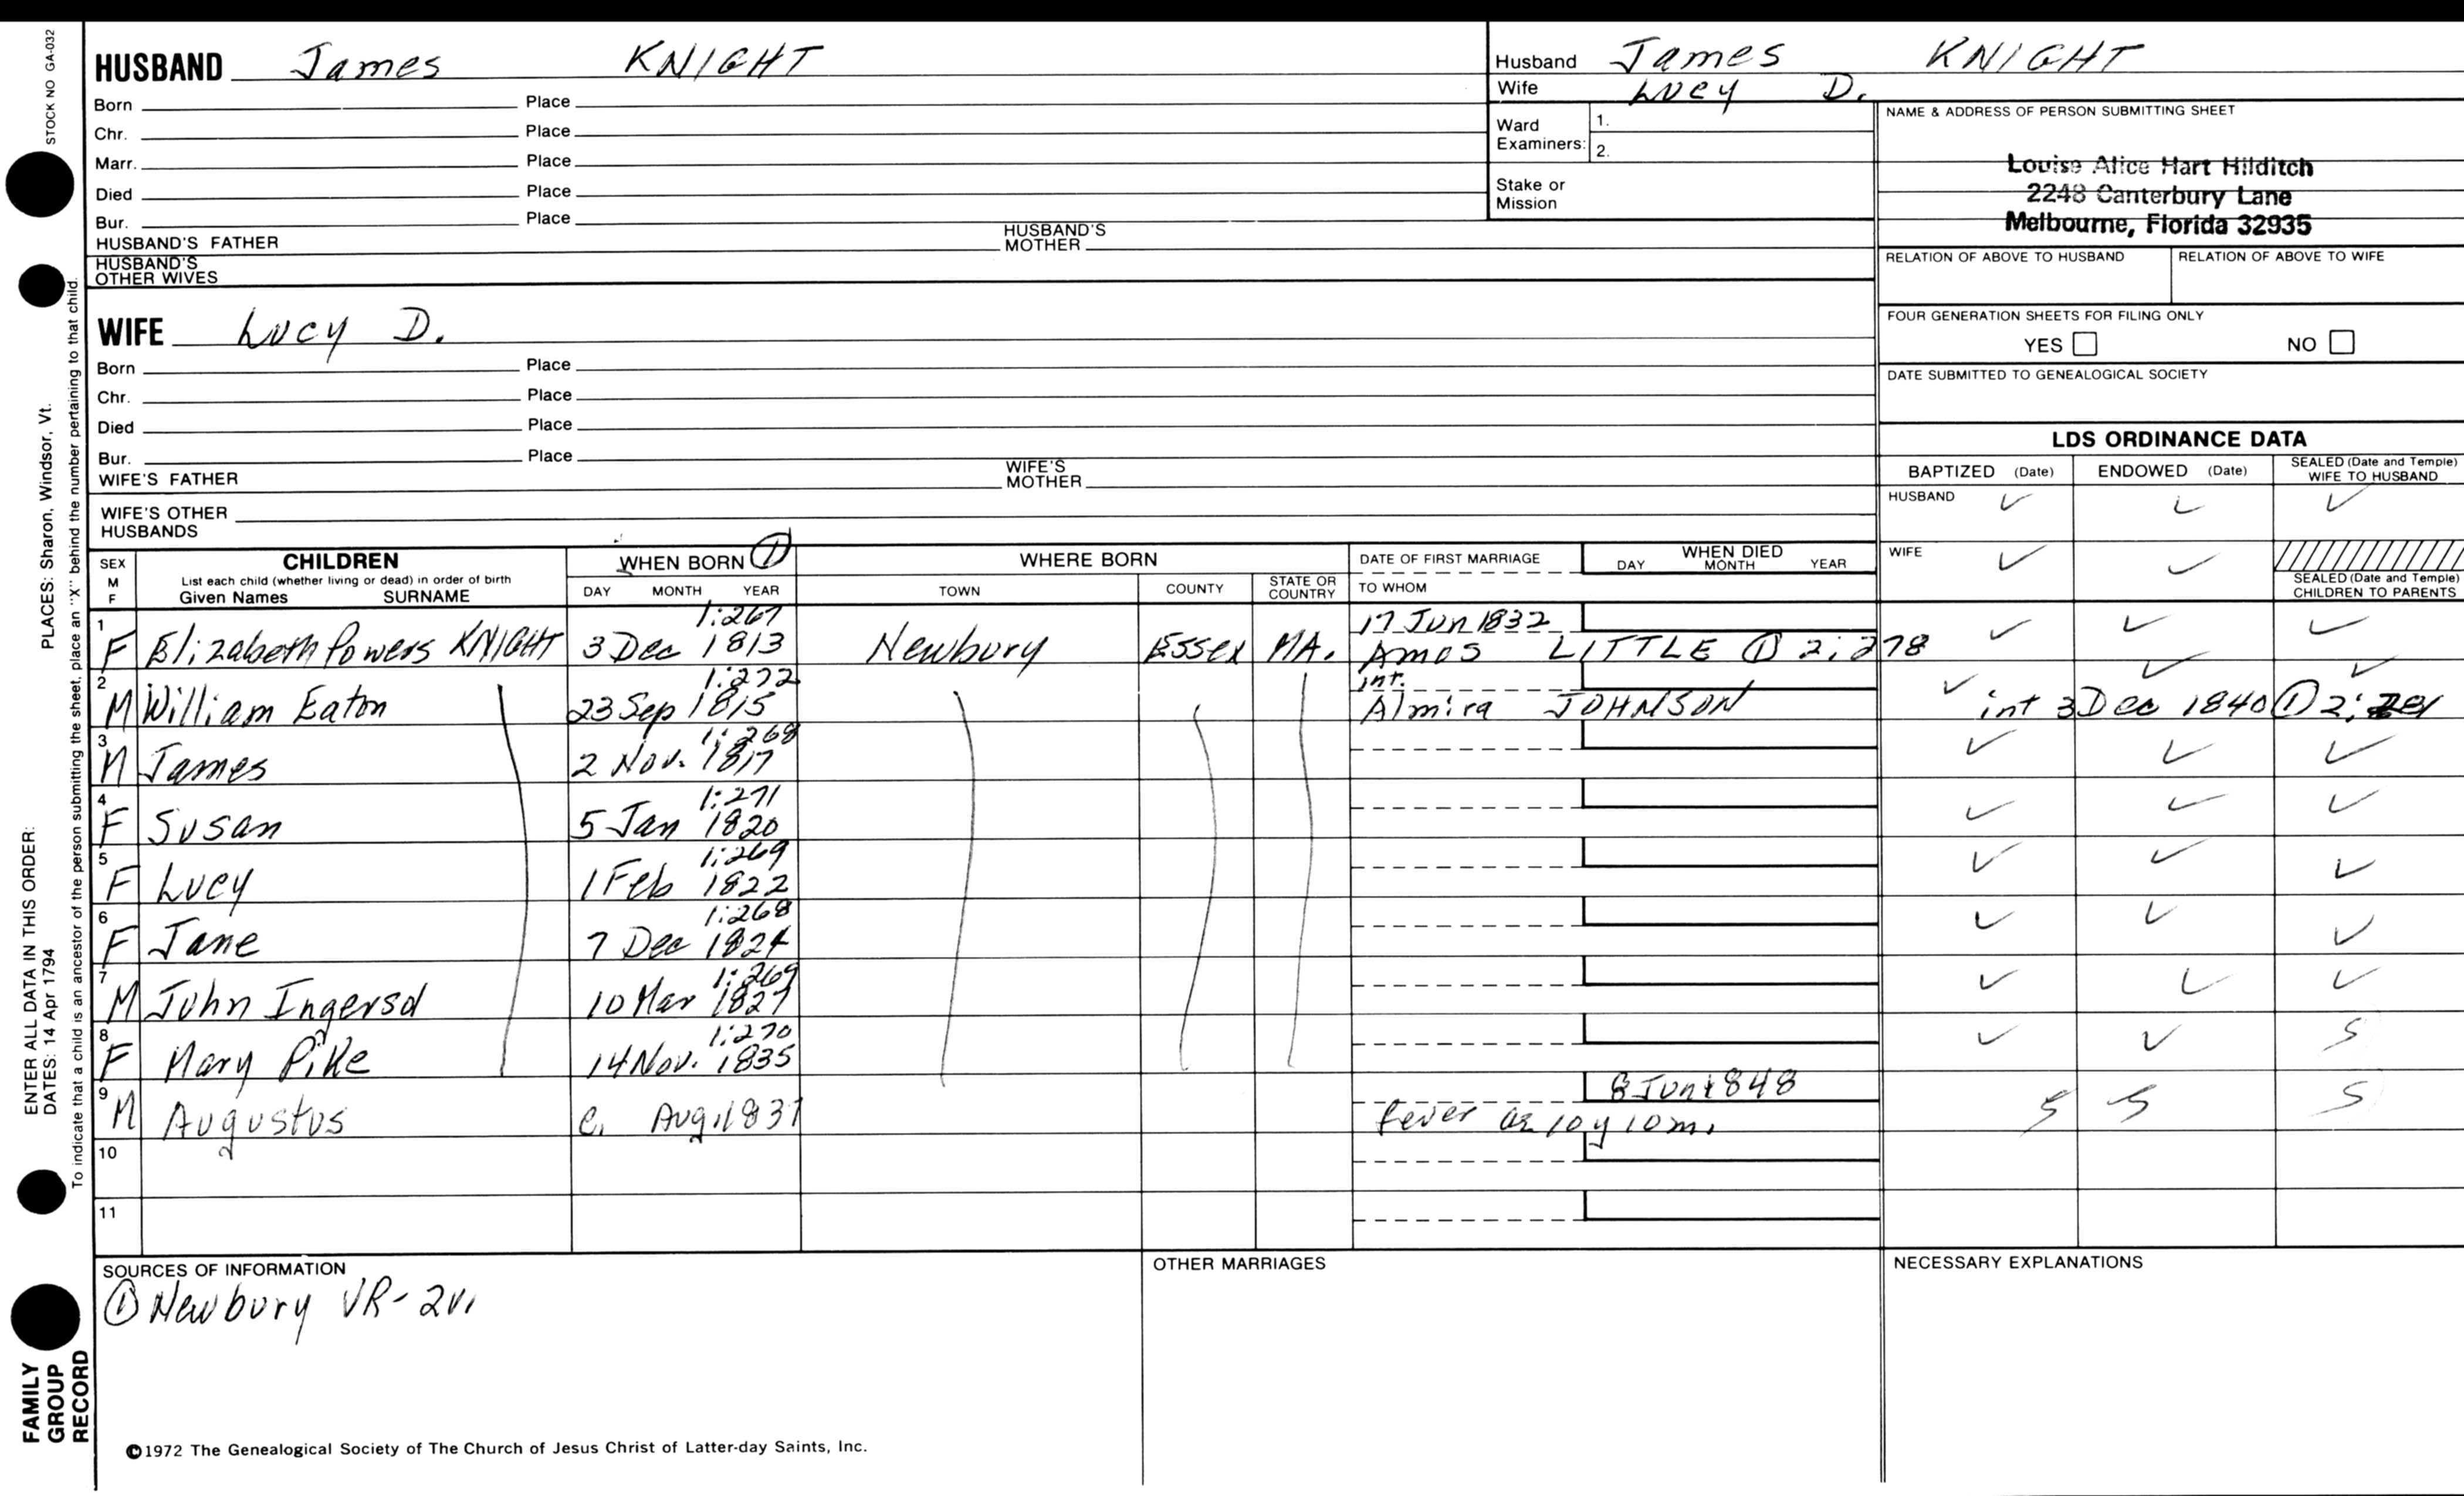 STOCK NO GA-032
HUSBAND James KNIGHT
Born Place
Chr. Place
Marr. Place
Died Place
Bur. Place
HUSBAND'S FATHER HUSBAND'S MOTHER
HUSBAND'S OTHER WIVES
WIFE Lucy D.
Born Place
Chr. Place
Died Place
Bur. Place
WIFE'S FATHER WIFE'S MOTHER
WIFE'S OTHER HUSBANDS
Husband James KNIGHT
Wife Lucy D.
Ward Examiners: 1.
2.
Stake or Mission
NAME & ADDRESS OF PERSON SUBMITTING SHEET
Louise Alice Hart Hilditch
2248 Canterbury Lane
Melbourne, Florida 32935
RELATION OF ABOVE TO HUSBAND RELATION OF ABOVE TO WIFE
FOUR GENERATION SHEETS FOR FILING ONLY
YES NO
DATE SUBMITTED TO GENEALOGICAL SOCIETY
LDS ORDINANCE DATA
BAPTIZED (Date) ENDOWED (Date) SEALED (Date and Temple) WIFE TO HUSBAND
HUSBAND ✓ ✓ ✓
WIFE ✓ ✓
SEALED (Date and Temple) CHILDREN TO PARENTS
SEX M F CHILDREN WHEN BORN ① WHERE BORN DATE OF FIRST MARRIAGE WHEN DIED
List each child (whether living or dead) in order of birth
Given Names SURNAME DAY MONTH YEAR TOWN COUNTY STATE OR COUNTRY TO WHOM DAY MONTH YEAR
1 1:267 17 Jun 1832
F Elizabeth Powers KNIGHT 3 Dec 1813 Newbury Essex MA. Amos LITTLE ① 2:278 ✓ ✓ ✓
2 1:272 int.
M William Eaton 23 Sep 1815 Almira JOHNSON ✓ ✓ ✓ int 3 Dec 1840 ① 2:
3 1:268
M James 2 Nov. 1817 ✓ ✓ ✓
4 1:271
F Susan 5 Jan 1820 ✓ ✓ ✓
5 1:269
F Lucy 1 Feb 1822 ✓ ✓ ✓
6 1:268
F Jane 7 Dec 1824 ✓ ✓ ✓
7 1:269
M John Ingersol 10 Mar 1827 ✓ ✓ ✓
8 1:270
F Mary Pike 14 Nov. 1835 ✓ ✓ S
9 8 Jun 1848
M Augustus c. Aug. 1837 fever ae 10y 10m. S S S
10
11
SOURCES OF INFORMATION
① Newbury VR-2v.
OTHER MARRIAGES
NECESSARY EXPLANATIONS
©1972 The Genealogical Society of The Church of Jesus Christ of Latter-day Saints, Inc.
FAMILY GROUP RECORD
ENTER ALL DATA IN THIS ORDER:
DATES: 14 Apr 1794
PLACES: Sharon, Windsor, Vt.
To indicate that a child is an ancestor of the person submitting the sheet, place an "X" behind the number pertaining to that child.